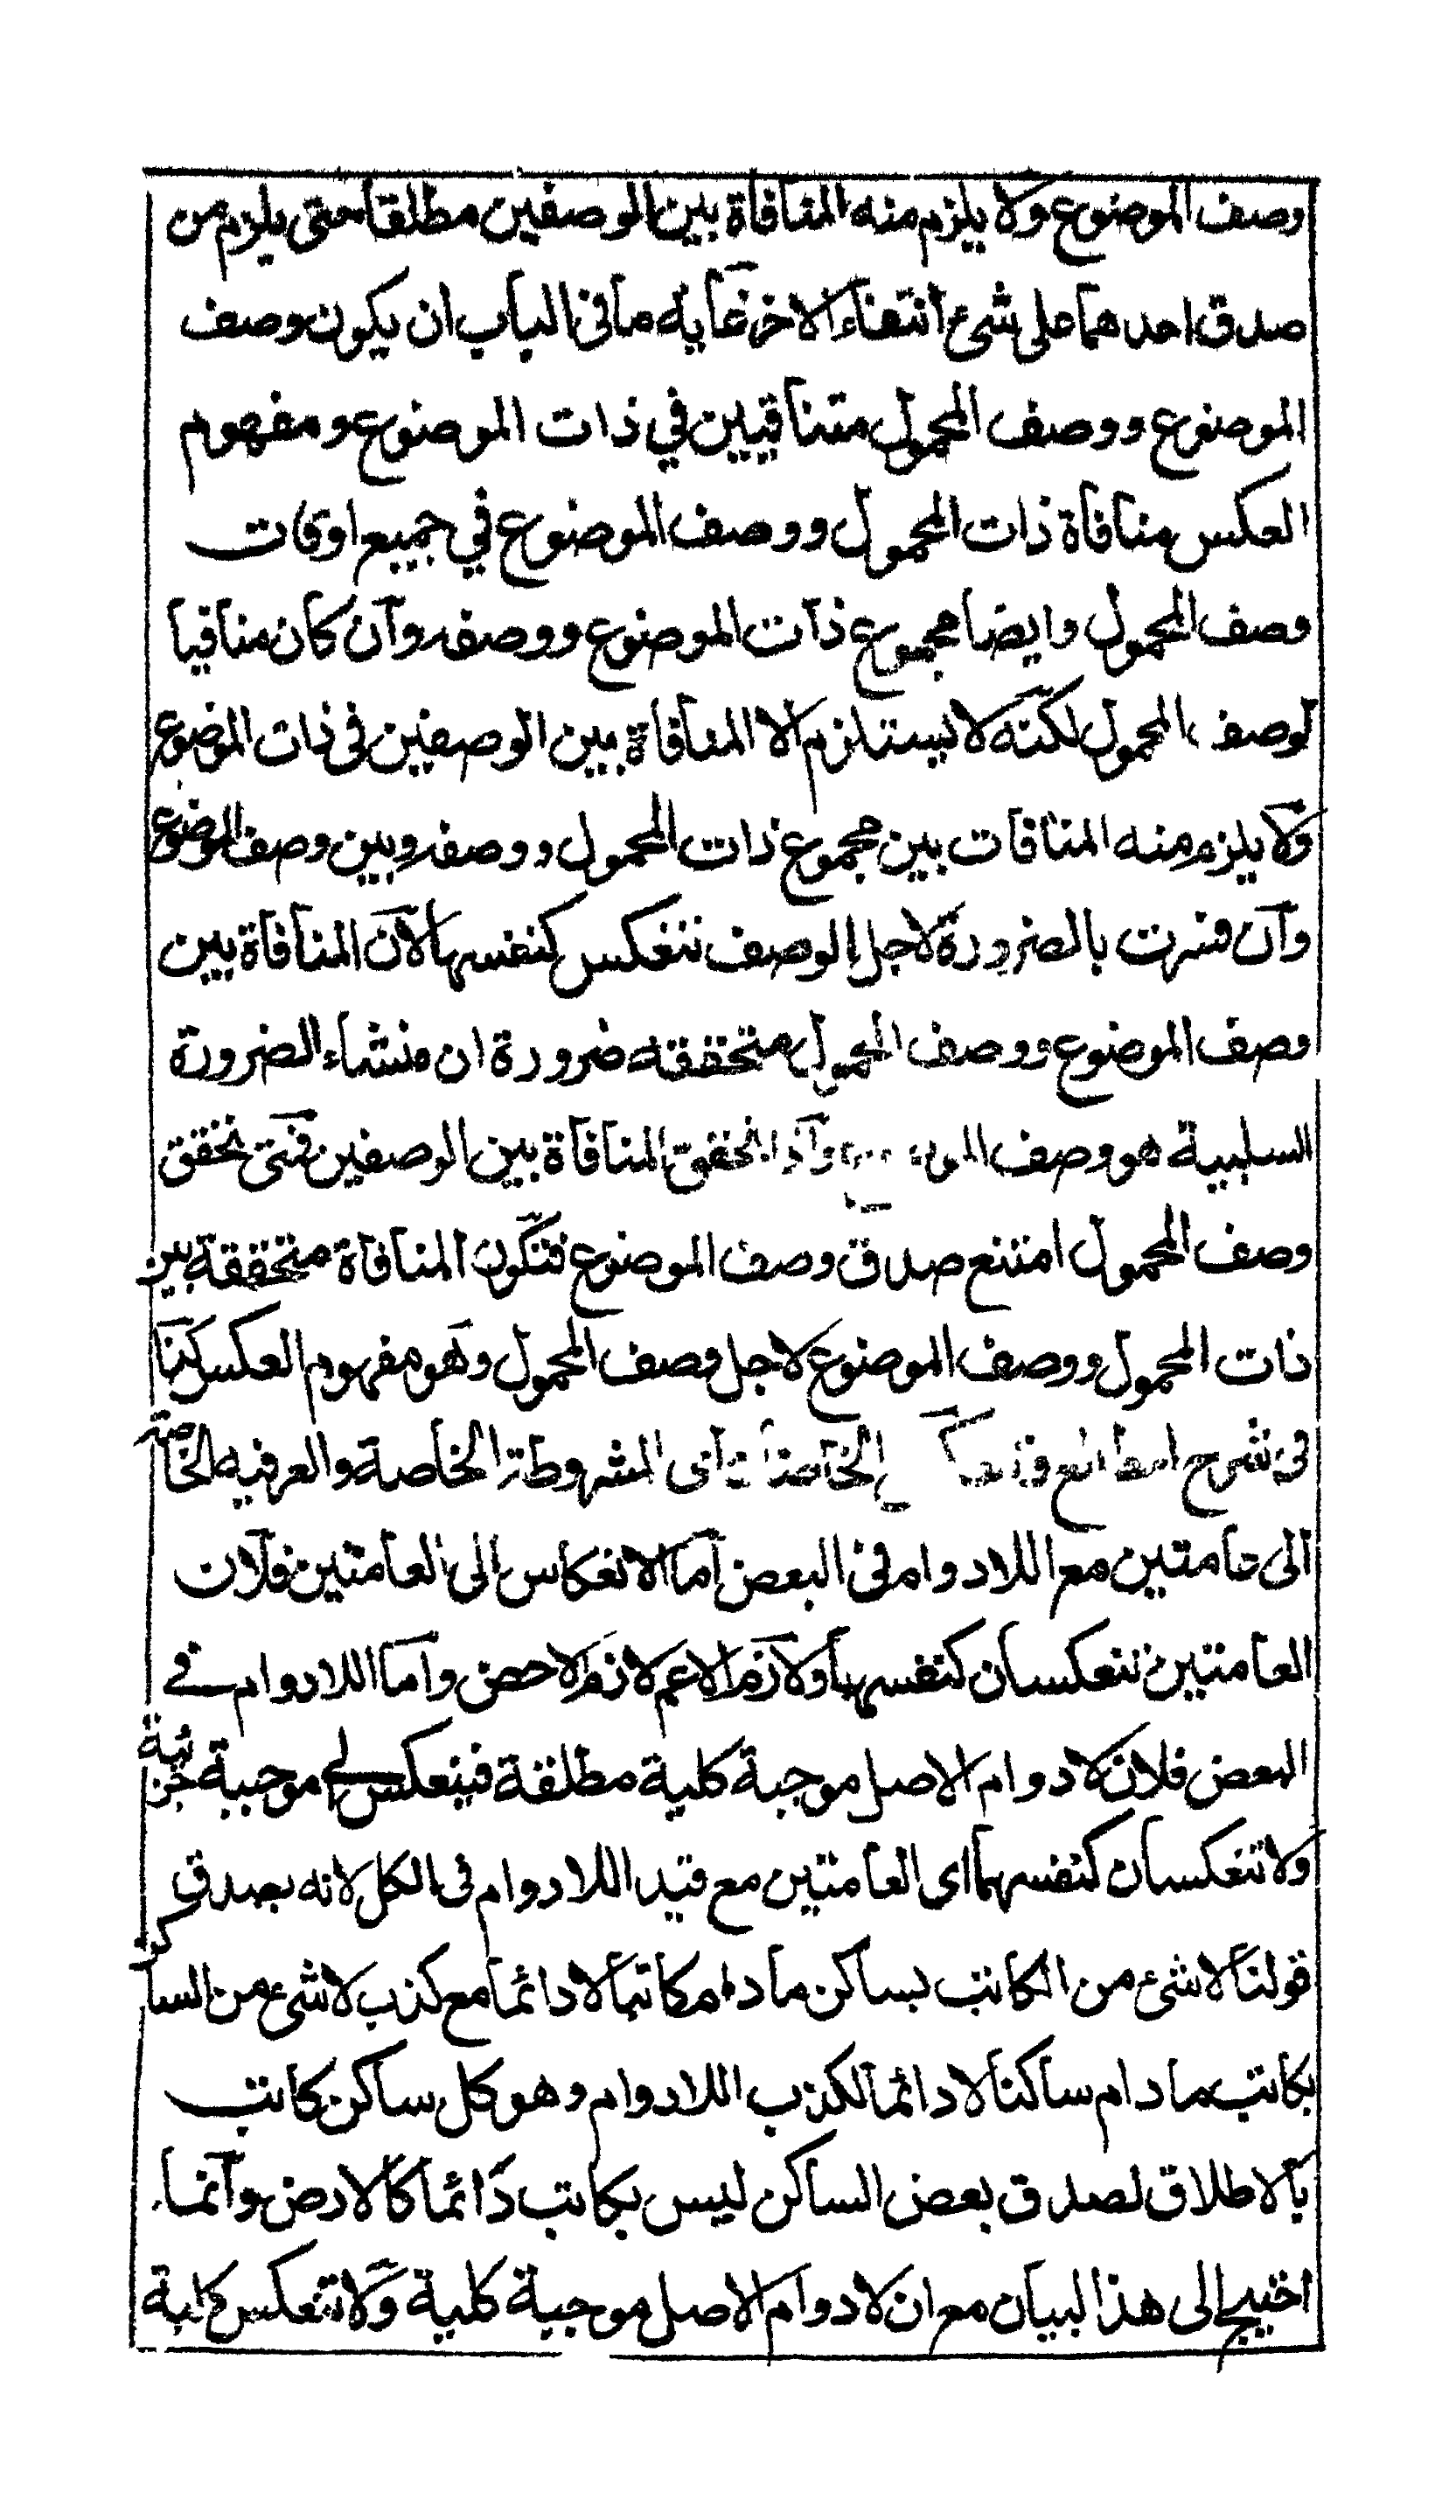 وصف الموضوع ولا يلزم منه المنافاة بين الوصفين مطلقا حتى يلزم من
صدق احدهما على شئ انتفاء الاخر غاية ما فى الباب ان يكون وصف
الموضوع ووصف المحمول متنافيين في ذات الموضوع ومفهوم
العكس منافاة ذات المحمول ووصف الموضوع في جميع اوقات
وصف المحمول وايضا مجموع ذات الموضوع ووصفه وان كان منافيا
لوصف المحمول لكنه لا يستلزم الا المنافاة بين الوصفين فى ذات الموضوع
ولا يلزم منه المنافات بين مجموع ذات المحمول ووصفه وبين وصف الموضوع
وان فسرت بالضرورة لاجل الوصف تنعكس كنفسها لان المنافاة بين
وصف الموضوع ووصف المحمول متحققة ضرورة ان منشاء الضرورة
السلبية هو وصف واذا تحقق المنافاة بين الوصفين فمتى تحقق
وصف المحمول امتنع صدق وصف الموضوع فتكون المنافاة متحققة بين
ذات المحمول ووصف الموضوع لاجل وصف المحمول وهو مفهوم العكس كذا
فى شرح المطالع الخاصتان اى المشروطة الخاصة والعرفيه الخاصة
الى عامتين مع اللادوام فى البعض اما الانعكاس الى العامتين فلان
العامتين تنعكسان كنفسهما ولازم الاعم لازم الاخص واما اللادوام في
البعض فلان لادوام الاصل موجبة كلية مطلقة فينعكس الى موجبة جزئية
ولا تنعكسان كنفسهما اى العامتين مع قيد اللادوام فى الكل لانه يصدق
قولنا لا شئ من الكاتب بساكن ما دام كاتبا لا دائما مع كذب لا شئ من الساكن
بكاتب ما دام ساكنا لا دائما لكذب اللادوام وهو كل ساكن كاتب
بالاطلاق لصدق بعض الساكن ليس بكاتب دائما كالارض وانما
احتيج الى هذا البيان مع ان لادوام الاصل موجبة كلية ولا تنعكس كلية